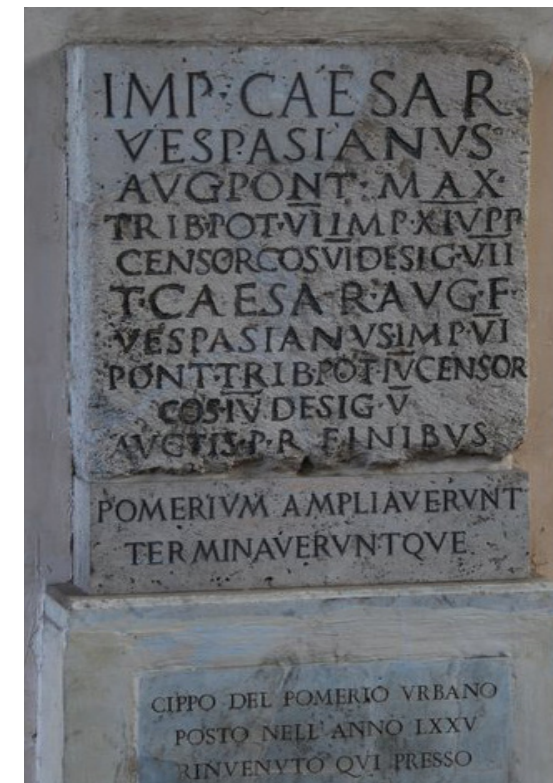 IMP·CAESAR
VESPASIANVS
AVG·PONT·MAX·
TRIB·POT·VII·IMP·XIV·P·P
CENSOR·COS·VI·DESIG·VII
T·CAESAR·AVG·F·
VESPASIANVS·IMP·VI
PONT·TRIB·POT·IV·CENSOR
COS·IV·DESIG·V
AVCTIS·P·R FINIBVS
POMERIVM AMPLIAVERVNT
TERMINAVERVNTQVE
CIPPO DEL POMERIO VRBANO
POSTO NELL'ANNO LXXV
RINVENVTO QVI PRESSO